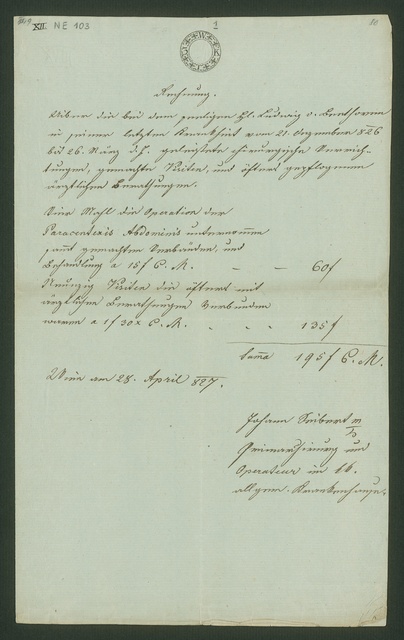 XII NE 103
1
10
Rechnung.
Ueber die bei dem seeligen H. Ludwig v. Beethoven
in seiner letzten Krankheit vom 21. Dezember 826
bis 26. März d. J. geleistete chirurgische Verrich-
tungen, gemachte Visiten, und öfters gepflogenen
ärztlichen Berathungen.
Vier Mahl die Operation der
Paracentesis Abdominis unternommen
samt gemachten Verbänden, und
Behandlung a 15f C. M. - - 60f
Neunzig Visiten die öfters mit
ärztlichen Berathungen verbunden
waren a 1f 30x C. M. " " " 135f
Suma 195f C. M.
Wien am 28. April 827.
Johann Seibert m/p
Primarchirurg und
Operateur im k k.
allgem. Krankenhause.